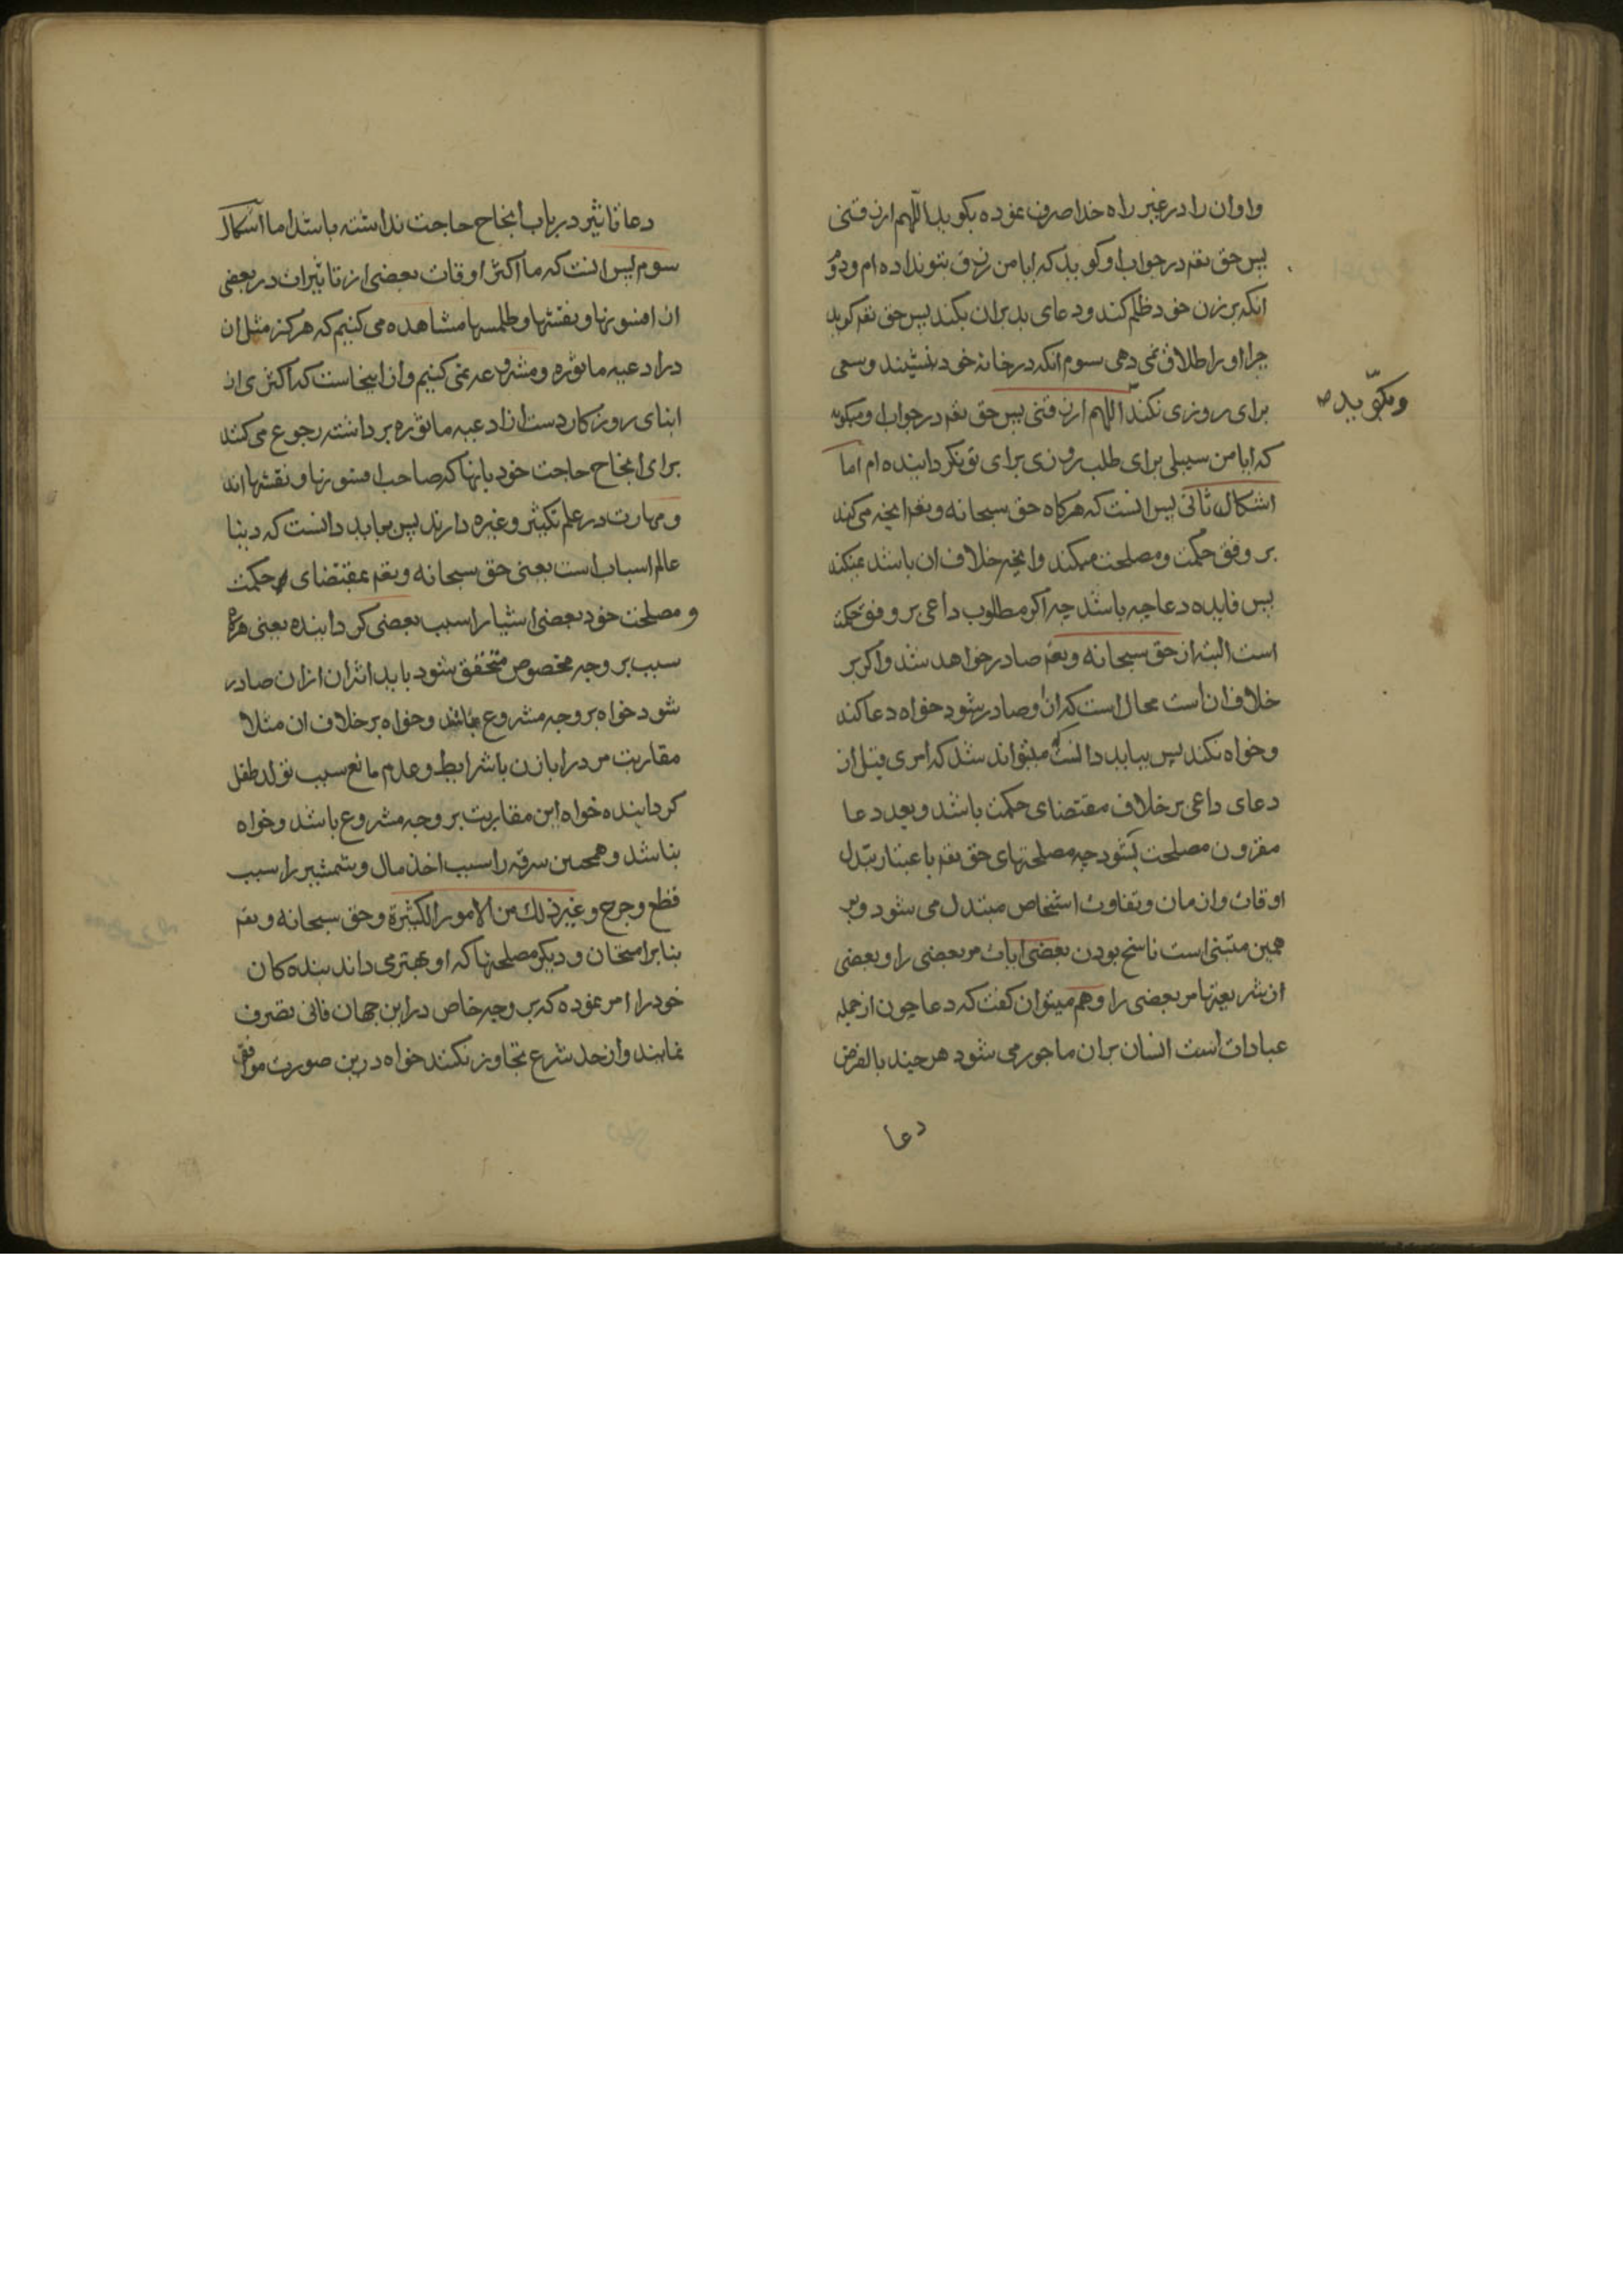 و او ان را در غیر راه خدا صرف نموده بکوید اللهم ارزقنی
پس حق تعم در جواب او کوید که ایا من رزق بتو نداده ام ودوم
انکه بر زن خود ظلم کند ودعای بد بران بکند پس حق تعم کوید
چرا او را طلاق نمی دهی سوم انکه در خانه خود نشیند وسعی
برای روزی نکند اللهم ارزقنی پس حق تعم در جواب او میکوید
وبکوید صح
که ایا من سبیلی برای طلب روزی برای تو نکردانیده ام اما
اشکال ثانی پس انست که هرکاه حق سبحانه وتعم انچه می کند
بر وفق حکمت ومصلحت میکند وانچه خلاف ان باشد نمیکند
پس فایده دعا چه باشد چه اکر مطلوب داعی بر وفق حکمت
است البته از حق سبحانه وتعم صادر خواهد شد واکر بر
خلاف ان است محال است که از او صادر شود خواه دعا کند
وخواه نکند پس بباید دانست که میتواند شد که امری قبل از
دعای داعی بر خلاف مقتضای حکمت باشد وبعد دعا
مقرون مصلحت بشود چه مصلحتهای حق تعم باعتبار تبدل
اوقات وازمان وتفاوت اشخاص متبدل می شود وبر
همین مبتنی است ناسخ بودن بعضی ایات مر بعضی را وبعضی
از شریعتها مر بعضی را وهم میتوان کفت که دعا چون از جمله
عبادات است انسان بران ماجور می شود هر چند بالفرض
دعا
دعا تاثیر در باب انجاح حاجت نداشته باشد اما اشکال
سوم پس انست که ما اکثر اوقات بعضی از تاثیرات در بعضی
از افسونها ونقشها وطلسمها مشاهده می کنیم که هرکز مثل ان
در ادعیه ماثوره ومشروعه نمی کنیم واز اینجاست که اکثری از
ابنای روزکار دست از ادعیه ماثوره برداشته رجوع می کنند
برای انجاح حاجت خود بانها که صاحب افسونها ونقشها اند
ومهارت در علم تکثیر وغیره دارند پس بباید دانست که دنیا
عالم اسباب است یعنی حق سبحانه وتعم بمقتضای حکمت
ومصلحت خود بعضی اشیا را سبب بعضی کردانیده یعنی هرکاه
سبب بر وجه مخصوص متحقق شود باید اثر ان ازان صادر
شود خواه بر وجه مشروع باشد وخواه بر خلاف ان مثلا
مقاربت مرد را با زن با شرایط وعدم مانع سبب تولد طفل
کردانیده خواه این مقاربت بر وجه مشروع باشد وخواه
نباشد وهمچنین سرقه را سبب اخذ مال وشمشیر را سبب
قطع وجرح وغیر ذلک من الامور الکثیرة وحق سبحانه وتعم
بنابر امتحان ودیکر مصلحتها که او بهتر می داند بنده کان
خود را امر نموده که بر وجه خاص در این جهان فانی تصرف
نمایند واز حد شرع تجاوز نکنند خواه درین صورت موافق